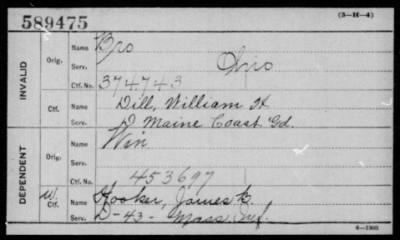 589475
(3-H-4)
INVALID
Orig.
Name Bro
Serv. Ohio
Ctf. No. 374.743
Ctf.
Name Dill, William H
Serv. D Maine Coast Gd.
DEPENDENT
Orig.
Name Win
Serv.
Ctf. No. 453697
W.
Ctf.
Name Hooker, James
Serv. D-43- Mass Inf.